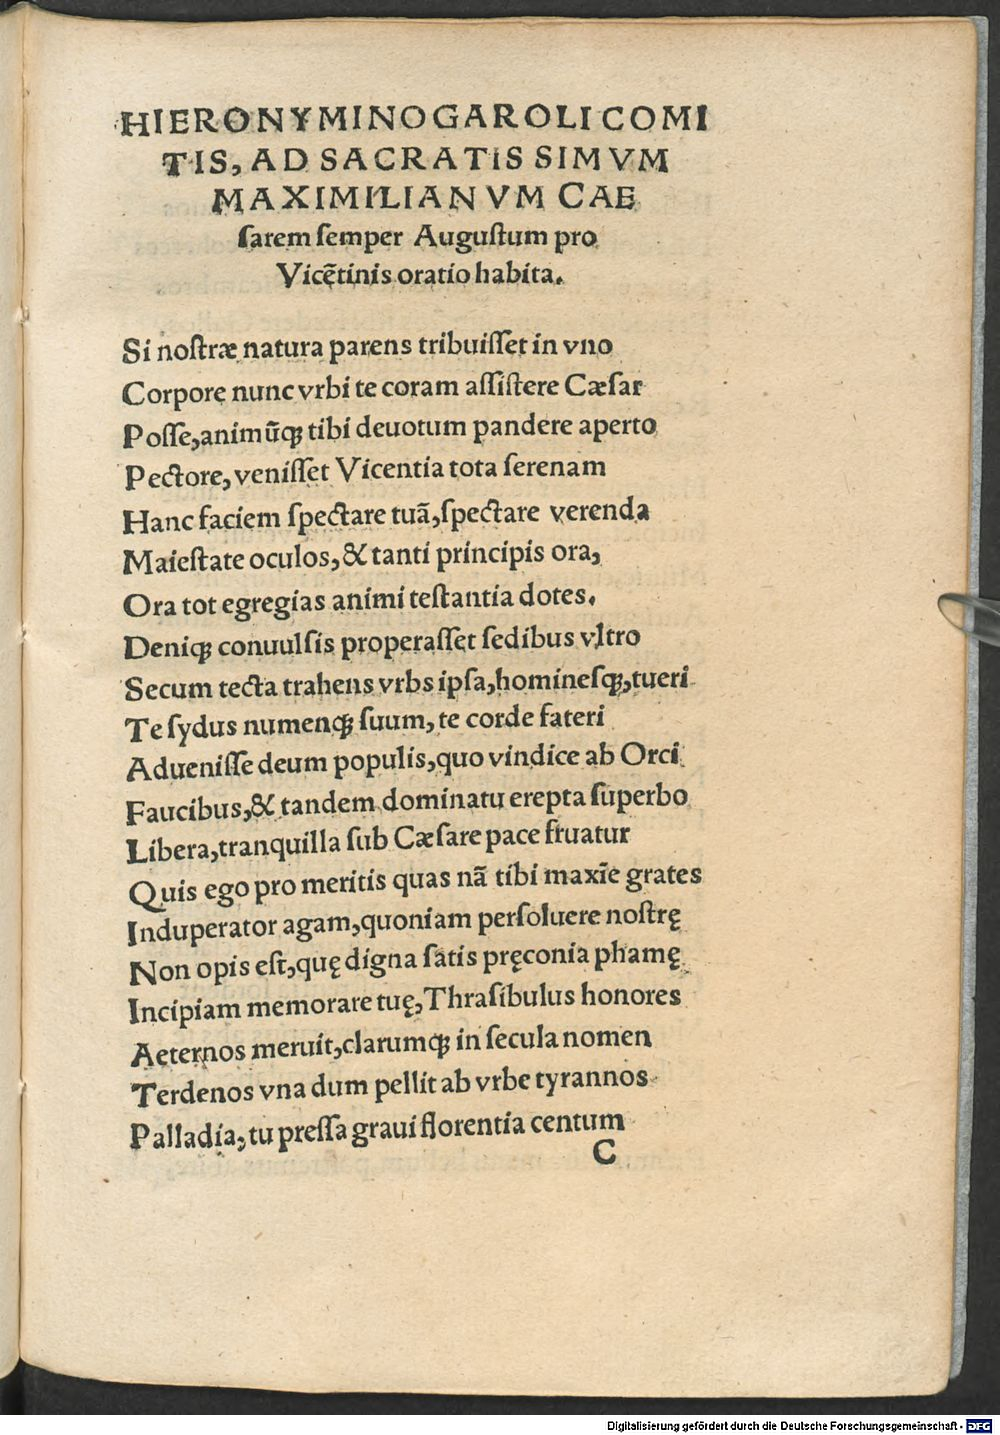 HIERONYMI NOGAROLI COMI
TIS, AD SACRATISSIMVM
MAXIMILIANVM CAE
ſarem ſemper Auguſtum pro
Vicẽtinis oratio habita.
Si noſtræ natura parens tribuiſſet in vno
Corpore nunc vrbi te coram aſſiſtere Cæſar
Poſſe, animũꝗ tibi deuotum pandere aperto
Pectore, veniſſet Vicentia tota ſerenam
Hanc faciem ſpectare tuã, ſpectare verenda
Maieſtate oculos, & tanti principis ora,
Ora tot egregias animi teſtantia dotes.
Deniꝗ conuulſis properaſſet ſedibus vltro
Secum tecta trahens vrbs ipſa, hominesꝗ, tueri
Te ſydus numenꝗ ſuum, te corde fateri
Adueniſſe deum populis, quo vindice ab Orci
Faucibus, & tandem dominatu erepta ſuperbo
Libera, tranquilla ſub Cæſare pace fruatur
Quis ego pro meritis quas nã tibi maxĩe grates
Induperator agam, quoniam perſoluere noſtrę
Non opis eſt, quę digna ſatis pręconia phamę
Incipiam memorare tuę, Thraſibulus honores
Aeternos meruit, clarumꝗ in ſecula nomen
Terdenos vna dum pellit ab vrbe tyrannos
Palladia, tu preſſa graui florentia centum
C
Digitalisierung gefördert durch die Deutsche Forschungsgemeinschaft - DFG